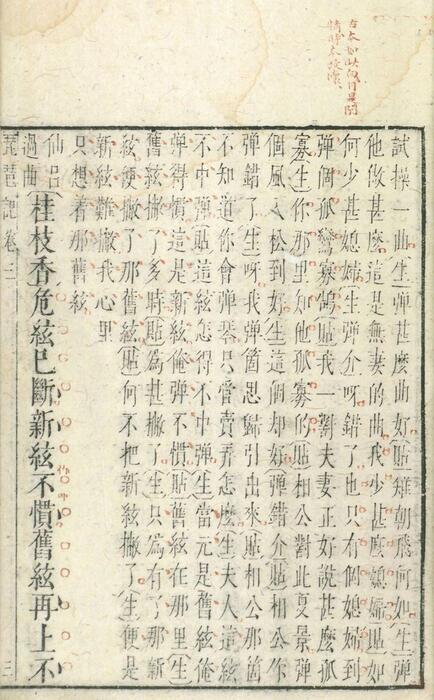 試操一曲生彈甚麼曲好貼雉朝飛何如生彈
他做甚麼這是無妻的曲我少甚麼媳婦貼如
何少甚媳婦生彈介呀錯了也只有個媳婦到
彈個孤鸞寡鵠貼我一對夫妻正好說甚麼孤
寡生你那里知他孤寡的貼相公對此夏景彈
個風入松到好生這個却好彈錯介貼相公你
彈錯了生呀我彈箇思歸引出來貼相公那箇
不知道你會彈琴只管賣弄怎麼生夫人這絃
不中彈貼這絃怎得不中彈生當元是舊絃俺
彈得慣這是新絃俺彈不慣貼舊絃在那里生
舊絃撇了多時貼為甚撇了生只為有了那新
絃便撇了那舊絃貼何不把新絃撇了生便是
新絃難撇我心里
只想着那舊絃
仙呂
過曲
桂枝香危絃已斷新絃不慣舊絃再上不
琵琶記卷三
三